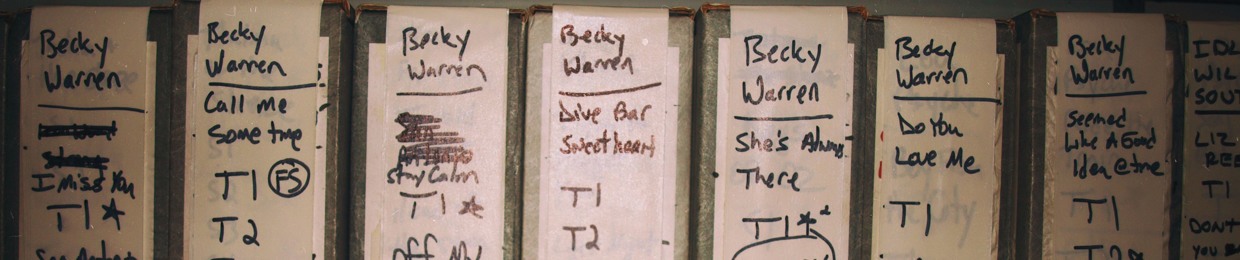 Becky
Warren
I Miss You
T1 ★
Becky
Warren
Call me
Sometime
T1 FS
T2
Becky
Warren
Stay Calm
T1 ★
Off My
Becky
Warren
Dive Bar
Sweetheart
T1
T2
Becky
Warren
She's Always
There
T1 ★
Becky
Warren
Do You
Love Me
T1
Becky
Warren
Seemed
Like A Good
Idea @ time
T1
T2
IDL
WIL
SOUT
LIZ
REE
T1
DONT
YOU B